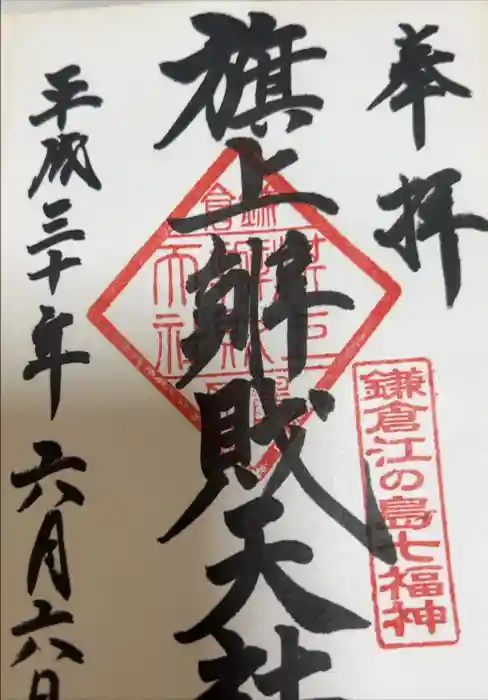 奉拝
鎌倉江の島七福神
旗上辨財天社
平成三十年六月六日